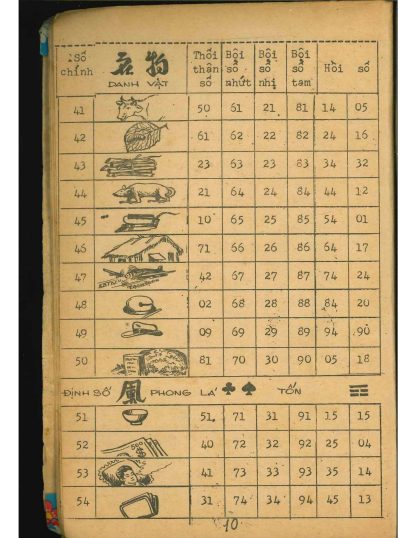 Số chính 名物 DANH VẬT Thổi thân số Bội số nhứt Bội số nhị Bội số tam Hồi số
41 50 61 21 81 14 05
42 61 62 22 82 24 16
43 23 63 23 83 34 32
44 21 64 24 84 44 12
45 10 65 25 85 54 01
46 71 66 26 86 64 17
47 42 67 27 87 74 24
48 02 68 28 88 84 20
49 09 69 29 89 94 90
50 81 70 30 90 05 18
ĐỊNH SỐ 風 PHONG LÁ ♣ ♠ TỐN ☴
51 51 71 31 91 15 15
52 40 72 32 92 25 04
53 41 73 33 93 35 14
54 31 74 34 94 45 13
10